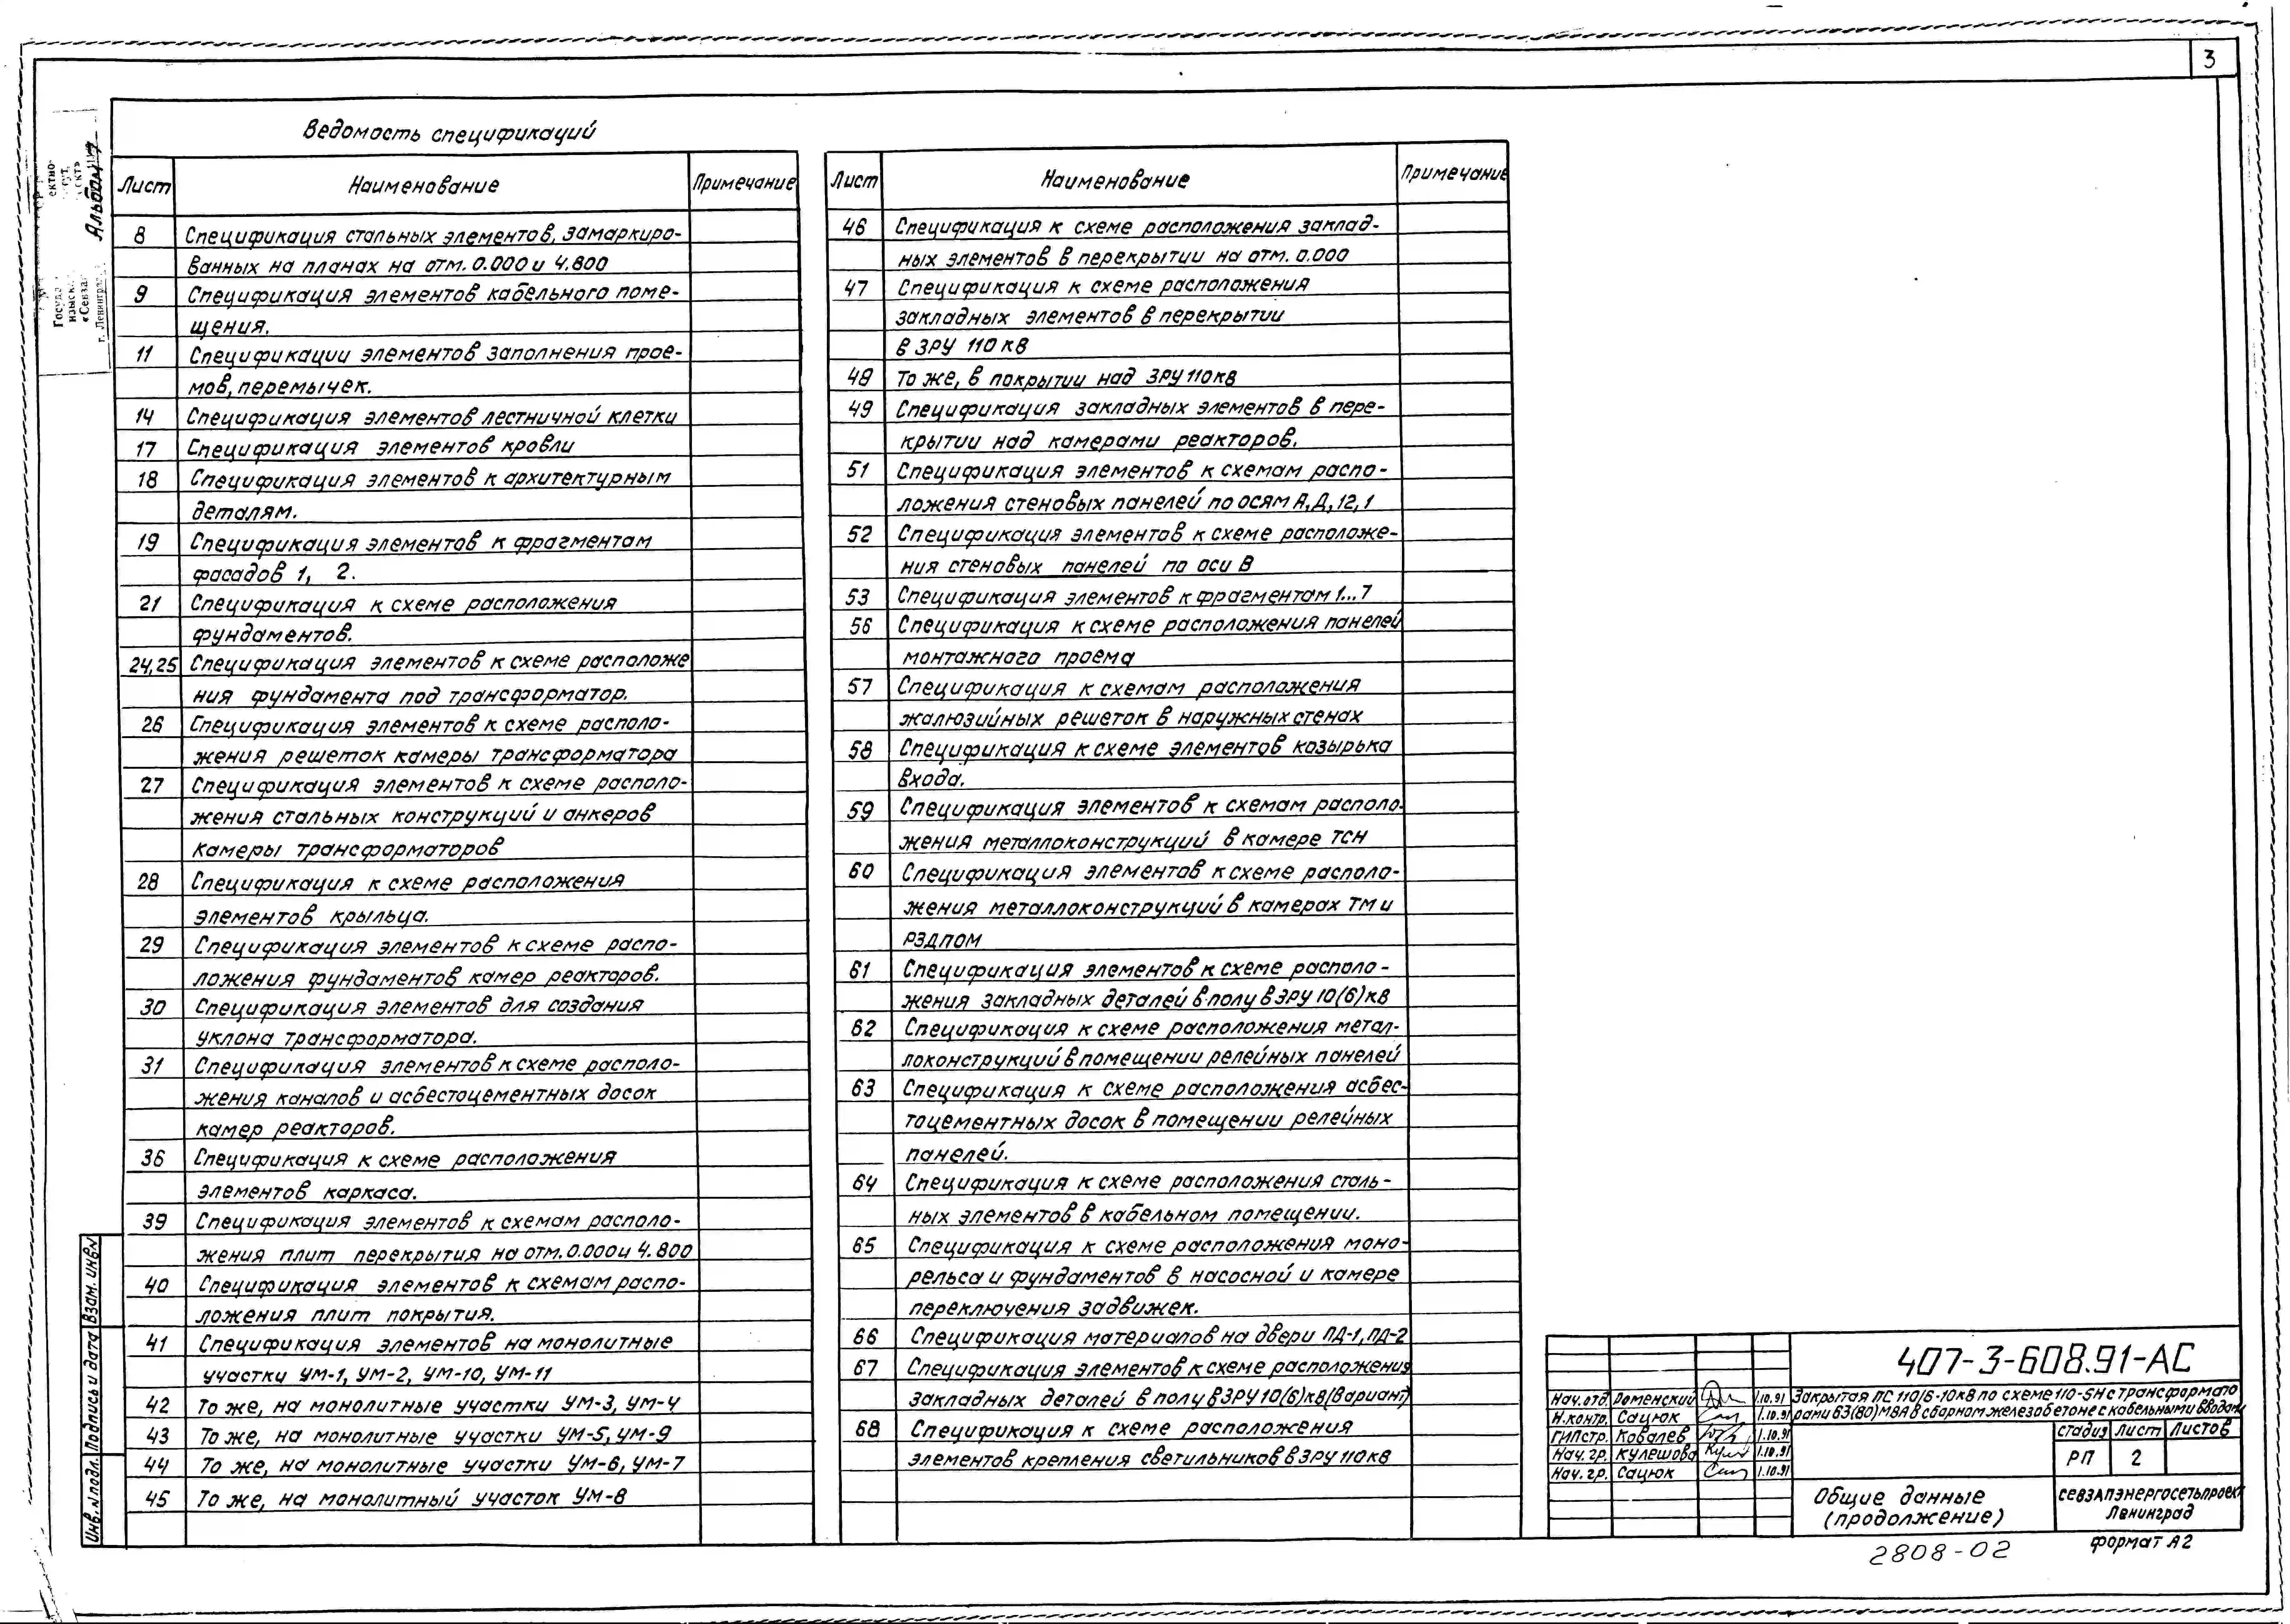 3
Ведомость спецификаций
Лист Наименование Примечание
8 Спецификация стальных элементов, замаркиро-
ванных на планах на отм. 0.000 и 4.800
9 Спецификация элементов кабельного поме-
щения.
11 Спецификации элементов заполнения прое-
мов, перемычек.
14 Спецификация элементов лестничной клетки
17 Спецификация элементов кровли
18 Спецификация элементов к архитектурным
деталям.
19 Спецификация элементов к фрагментам
фасадов 1, 2.
21 Спецификация к схеме расположения
фундаментов.
24,25 Спецификация элементов к схеме расположе
ния фундамента под трансформатор.
26 Спецификация элементов к схеме располо-
жения решеток камеры трансформатора
27 Спецификация элементов к схеме располо-
жения стальных конструкций и анкеров
камеры трансформаторов
28 Спецификация к схеме расположения
элементов крыльца.
29 Спецификация элементов к схеме распо-
ложения фундаментов камер реакторов.
30 Спецификация элементов для создания
уклона трансформатора.
31 Спецификация элементов к схеме располо-
жения каналов и асбестоцементных досок
камер реакторов.
36 Спецификация к схеме расположения
элементов каркаса.
39 Спецификация элементов к схемам располо-
жения плит перекрытия на отм. 0.000 и 4.800
40 Спецификация элементов к схемам распо-
ложения плит покрытия.
41 Спецификация элементов на монолитные
участки УМ-1, УМ-2, УМ-10, УМ-11
42 То же, на монолитные участки УМ-3, УМ-4
43 То же, на монолитные участки УМ-5, УМ-9
44 То же, на монолитные участки УМ-6, УМ-7
45 То же, на монолитный участок УМ-8
Лист Наименование Примечание
46 Спецификация к схеме расположения заклад-
ных элементов в перекрытии на отм. 0.000
47 Спецификация к схеме расположения
закладных элементов в перекрытии
в ЗРУ 110 кв
48 То же, в покрытии над ЗРУ 110кв
49 Спецификация закладных элементов в пере-
крытии над камерами реакторов.
51 Спецификация элементов к схемам распо-
ложения стеновых панелей по осям А, Д, 12, 1
52 Спецификация элементов к схеме расположе-
ния стеновых панелей по оси В
53 Спецификация элементов к фрагментам 1...7
56 Спецификация к схеме расположения панелей
монтажного проема
57 Спецификация к схемам расположения
жалюзийных решеток в наружных стенах
58 Спецификация к схеме элементов козырька
входа.
59 Спецификация элементов к схемам располо-
жения металлоконструкций в камере ТСН
60 Спецификация элементов к схеме располо-
жения металлоконструкций в камерах ТМ и
РЗДПОМ
61 Спецификация элементов к схеме располо-
жения закладных деталей в полу в ЗРУ 10(6)кв
62 Спецификация к схеме расположения метал-
локонструкций в помещении релейных панелей
63 Спецификация к схеме расположения асбес-
тоцементных досок в помещении релейных
панелей.
64 Спецификация к схеме расположения сталь-
ных элементов в кабельном помещении.
65 Спецификация к схеме расположения моно-
рельса и фундаментов в насосной и камере
переключения задвижек.
66 Спецификация материалов на двери ПД-1, ПД-2
67 Спецификация элементов к схеме расположения
закладных деталей в полу в ЗРУ 10(6)кв(вариант)
68 Спецификация к схеме расположения
элементов крепления светильников в ЗРУ 110кв
Альбом
Госуда
изыск
«Севза
г. Ленинград
Взам. инв.№
Подпись и дата
Инв.№подл.
407-3-608.91-АС
Нач. отд. Роменский 1.10.91
Н.контр. Сацюк 1.10.91
ГИПстр. Ковалев 1.10.91
Нач. гр. Кулешова 1.10.91
Нач. гр. Сацюк 1.10.91
Закрытая ПС 110/6-10кв по схеме 110-5Н с трансформато
рами 63(80) МВА в сборном железобетоне с кабельными вводами
Стадия Лист Листов
РП 2
Общие данные
(продолжение)
Севзапэнергосетьпроект
Ленинград
2808-02
формат А2